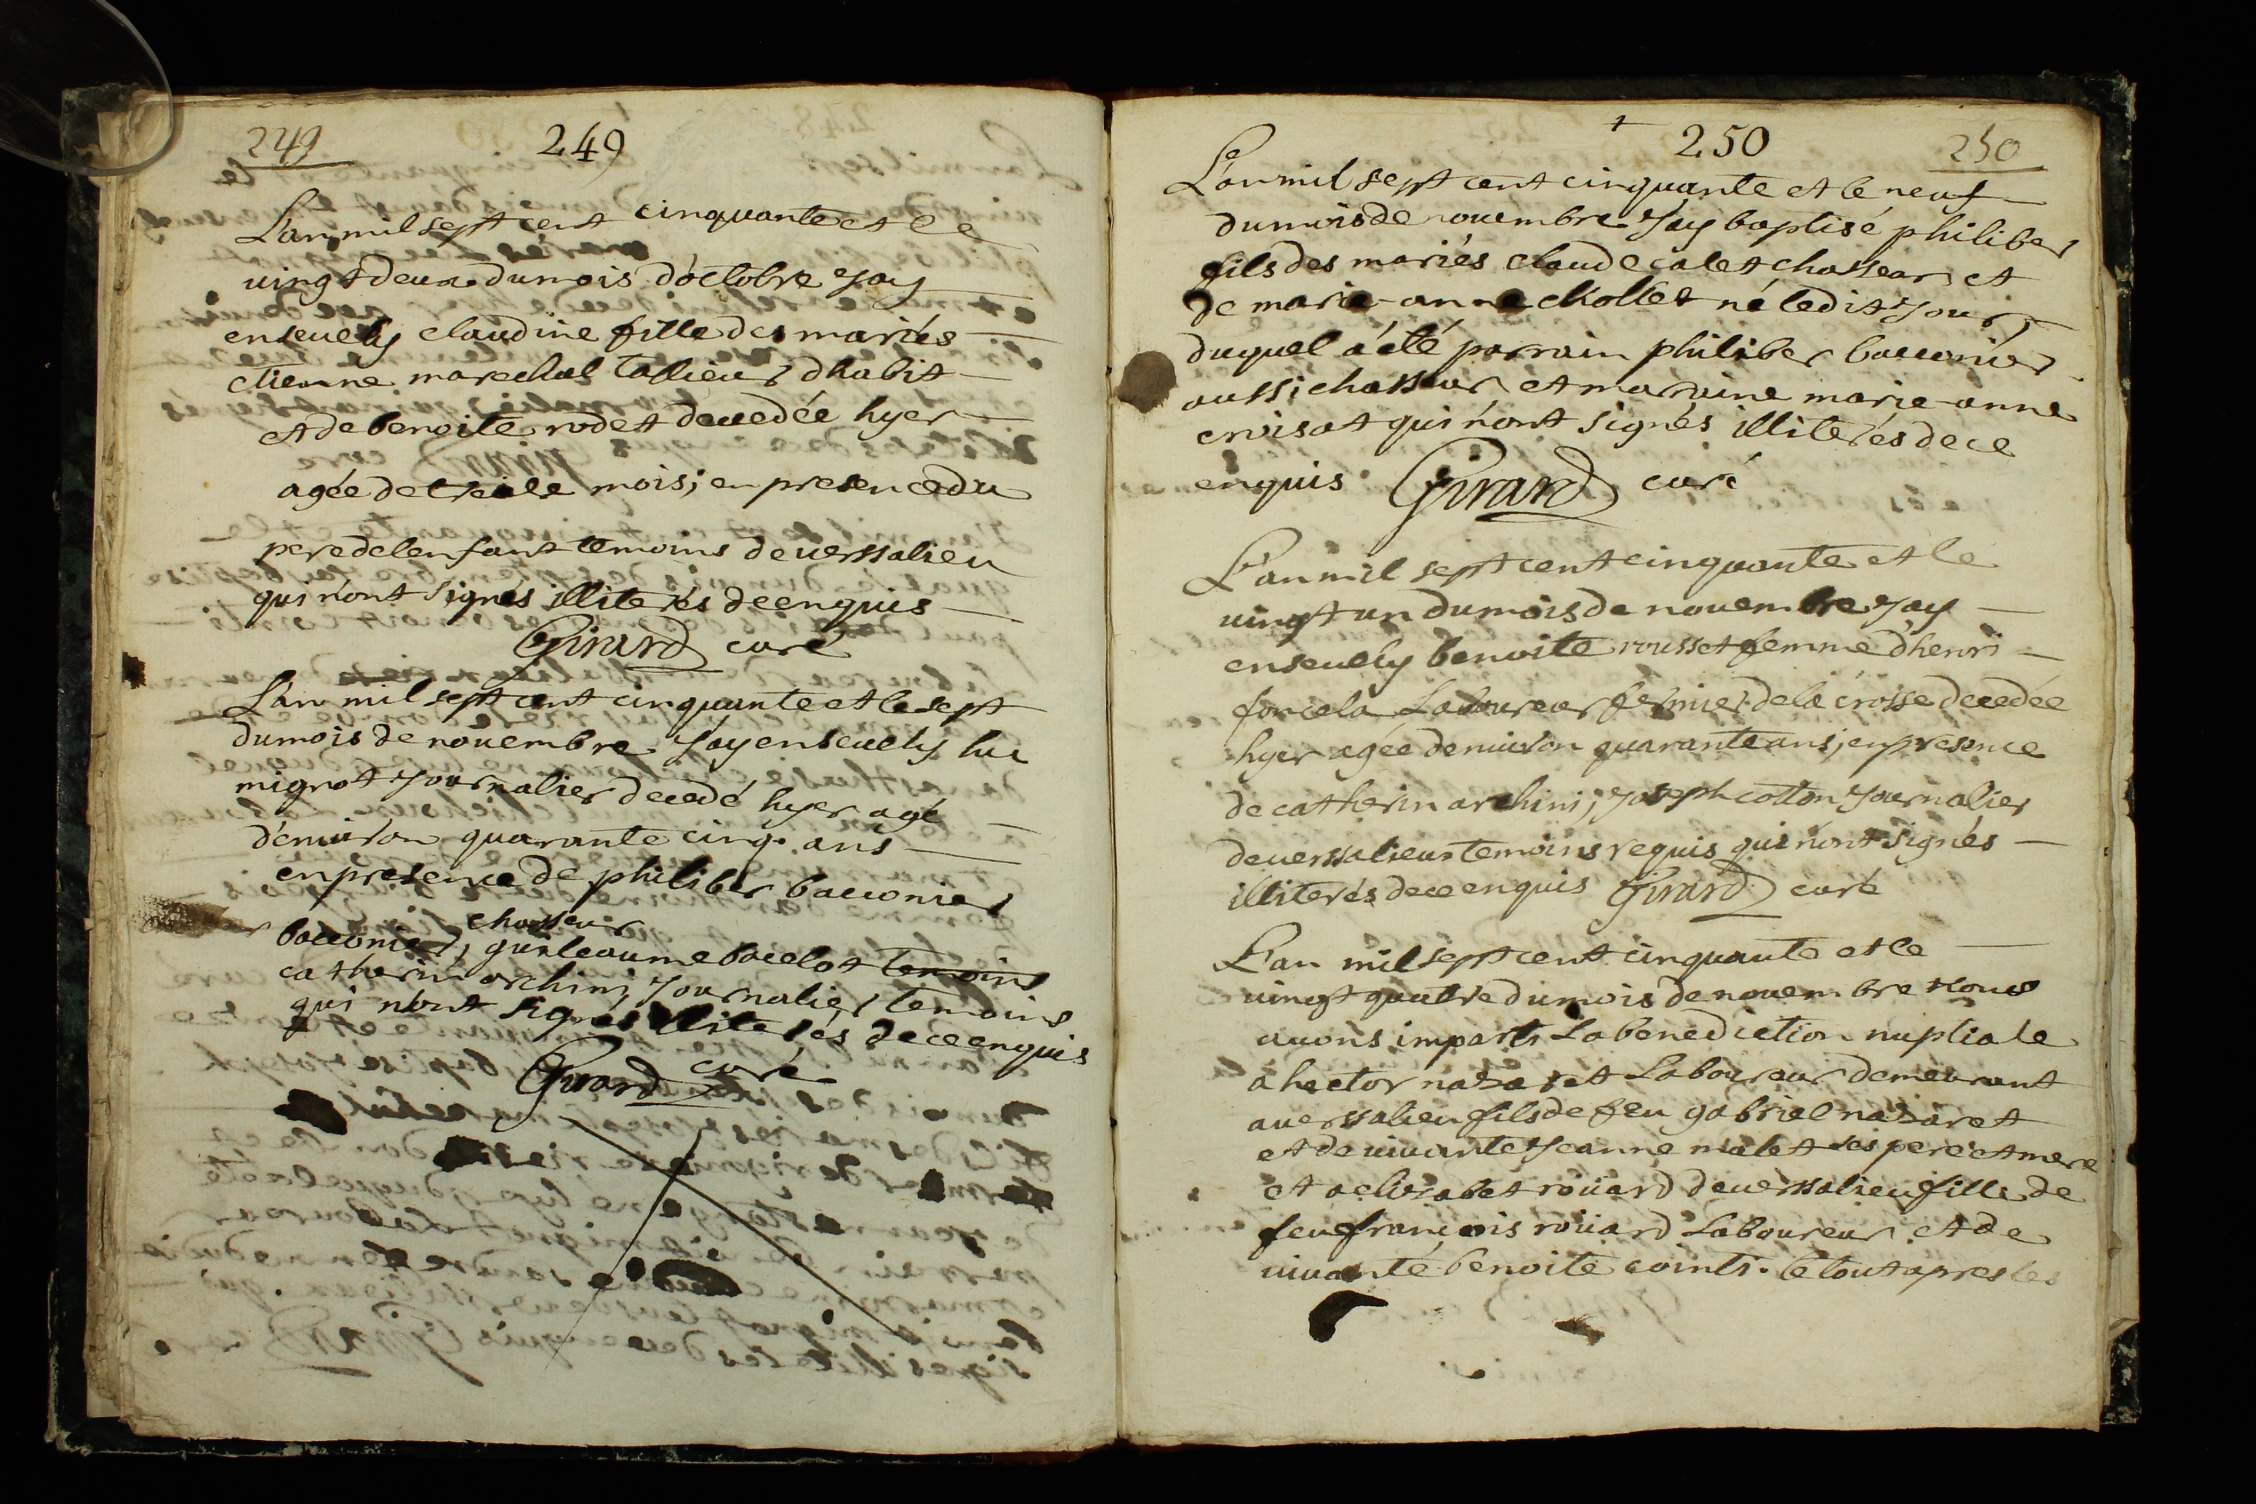 249
249
L'an mil sept cent cinquante et le
vingt deux du mois d'octobre j'ay
ensevely claudine fille des mariés
etienne marechal tallieur d'habit
et de benoite rodet decedée hyer
agée de treise mois; en presence du
pere de lenfant temoins de versalieu
qui n'ont signés illiterés de enquis
Girard curé
L'an mil sept cent cinquante et le sept
du mois de novembre j'ay ensevely luc
mignot journalier decedé hyer agé
d'environ quarante cinq ans
en presence de philiber bacconier
chasseur
bacconier, guileaume bacelot temoins
catherin archini journalier temoins
qui n'ont signés illiterés de ce enquis
Girard curé
250
250
L'an mil sept cent cinquante et le neuf
du mois de novembre j'ay baptisé philiber
fils des mariés claude calet chasseur et
de marie-anne chollet né ledit jour
duquel a été parrain philiber bacconier
aussi chasseur et marraine marie-anne
croisat qui n'ont signés illiterés de ce
enquis Girard curé
L'an mil sept cent cinquante et le
vingt un du mois de novembre j'ay
ensevely benoite rousset femme d'henri
foncela Laboureur fermier de la crosse decedée
hyer agée denviron quarante ans; en presence
de catherin archini; joseph cotton journalier
de versalieu temoins requis qui n'ont signés
illiterés de ce enquis Girard curé
L'an mil sept cent cinquante et le
vingt quatre du mois de novembre nous
avons imparti La benediction nuptiale
a hector nazaret Laboureur demeurant
a versalieu fils de feu gabriel nazaret
et de vivante jeanne malet ses pere et mere
et a elizabet roüard de versalieu fille de
feu françois roüard Laboureur et de
vivante benoite cointi. le tout apres les